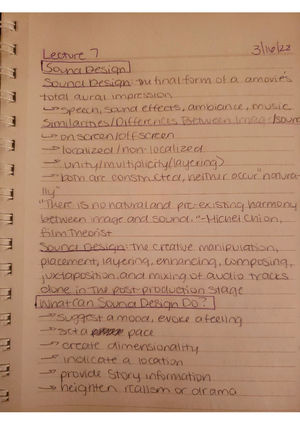 Lecture 7 3/16/22
Sound Design
Sound Design: the final form of a movie's
total aural impression
→ speech, sound effects, ambiance, music
Similarities/Differences Between Image/Sound
→ onscreen/offscreen
→ localized/non-localized
→ unity/multiplicity (layering)
→ both are constructed, neither occur "natura-
lly"
"There is no natural and pre-existing harmony
between image and sound." -Michel Chion,
film theorist
Sound Design: the creative manipulation,
placement, layering, enhancing, composing,
juxtaposition, and mixing of audio tracks
done in the post-production stage
What can Sound Design Do?
→ suggest a mood, evoke a feeling
→ set a pace
→ create dimensionality
→ indicate a location
→ provide story information
→ heighten realism or drama